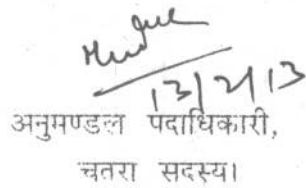 13/2/13
अनुमण्डल पदाधिकारी,
चतरा सदस्य।